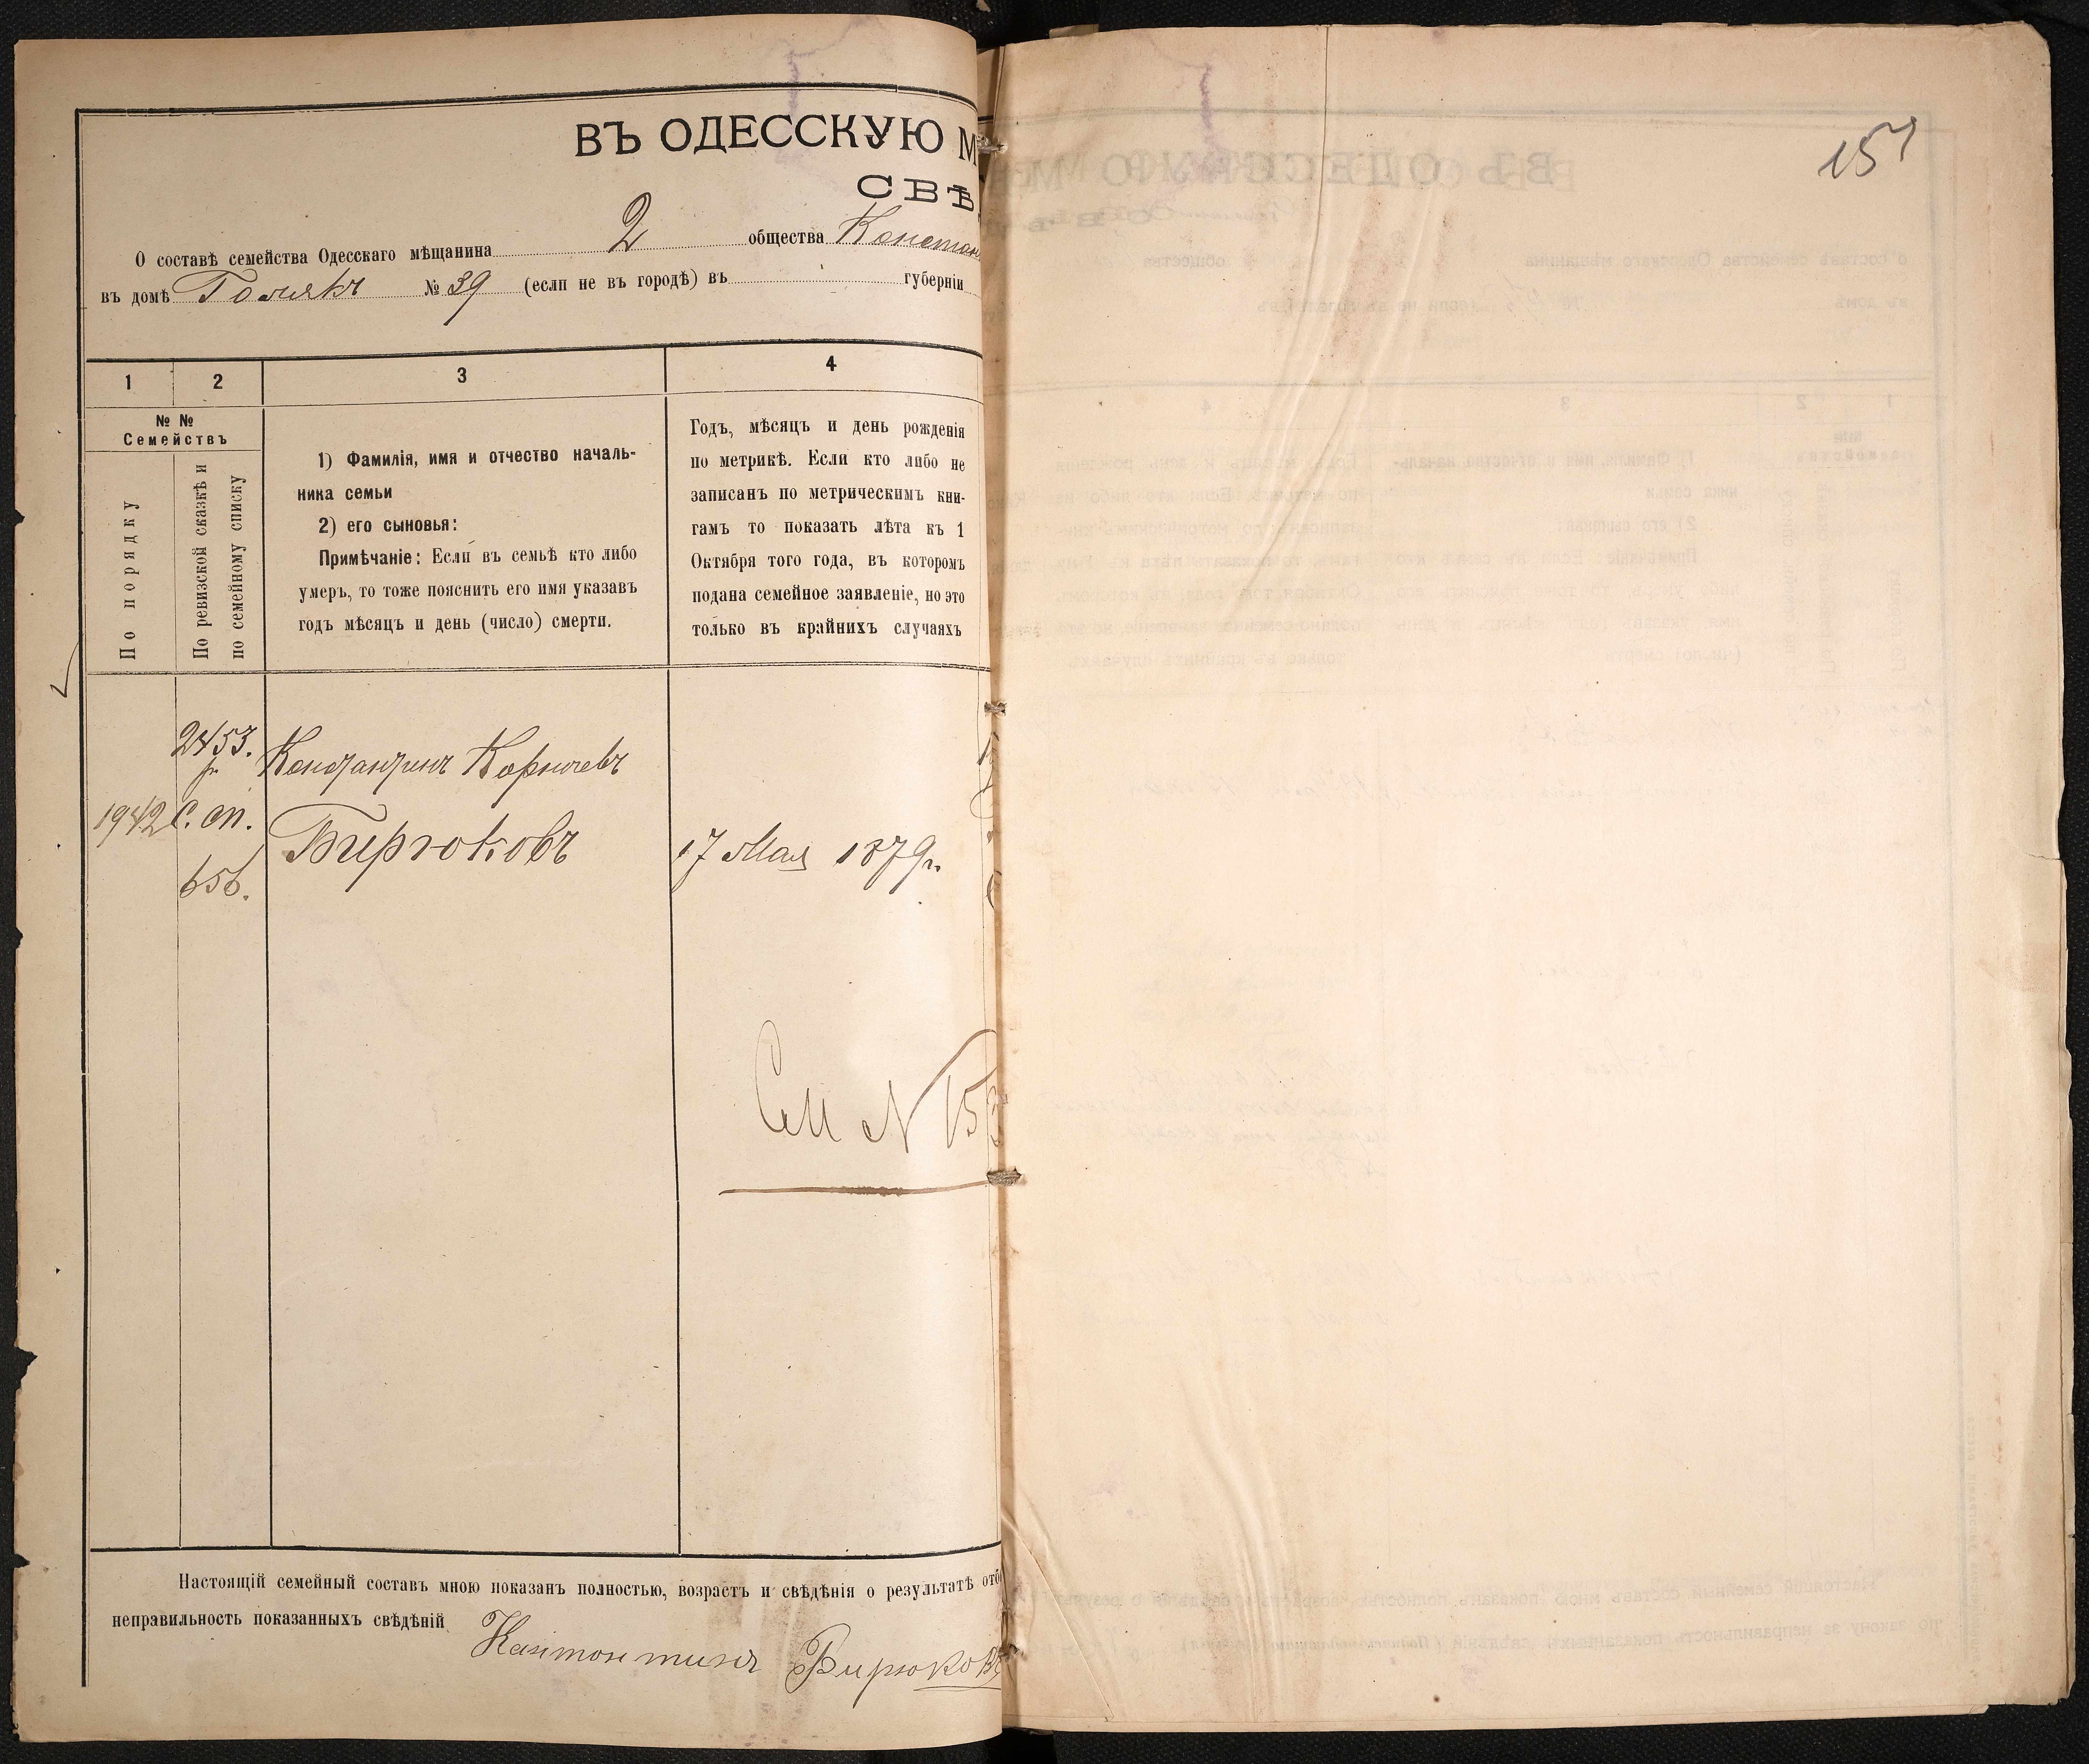 ВЪ ОДЕССКУЮ М
СВѢ
О составѣ семейства Одесскаго мѣщанина 2 общества Констан
въ домѣ № 39 (если не въ городѣ) въ губерніи
1 2 3 4
№ №
Семействъ
По порядку
По ревизской сказкѣ и
по семейному списку
1) Фамилія, имя и отчество началь-
ника семьи
2) его сыновья:
Примѣчаніе: Если въ семьѣ кто либо
умеръ, то тоже пояснить его имя указавъ
годъ мѣсяцъ и день (число) смерти.
Годъ, мѣсяцъ и день рожденія
по метрикѣ. Если кто либо не
записанъ по метрическимъ кни-
гамъ то показать лѣта къ 1
Октября того года, въ которомъ
подана семейное заявленіе, но это
только въ крайнихъ случаяхъ
2453.
Константинъ Корнеевъ
1942 с. сп.
Бирюковъ
17 Мая 1879 г.
656.
См № 153
Настоящій семейный составъ мною показанъ полностью, возрастъ и свѣдѣнія о результатѣ отб
неправильность показанныхъ свѣдѣній
Канстонтинъ Бирюковъ
151